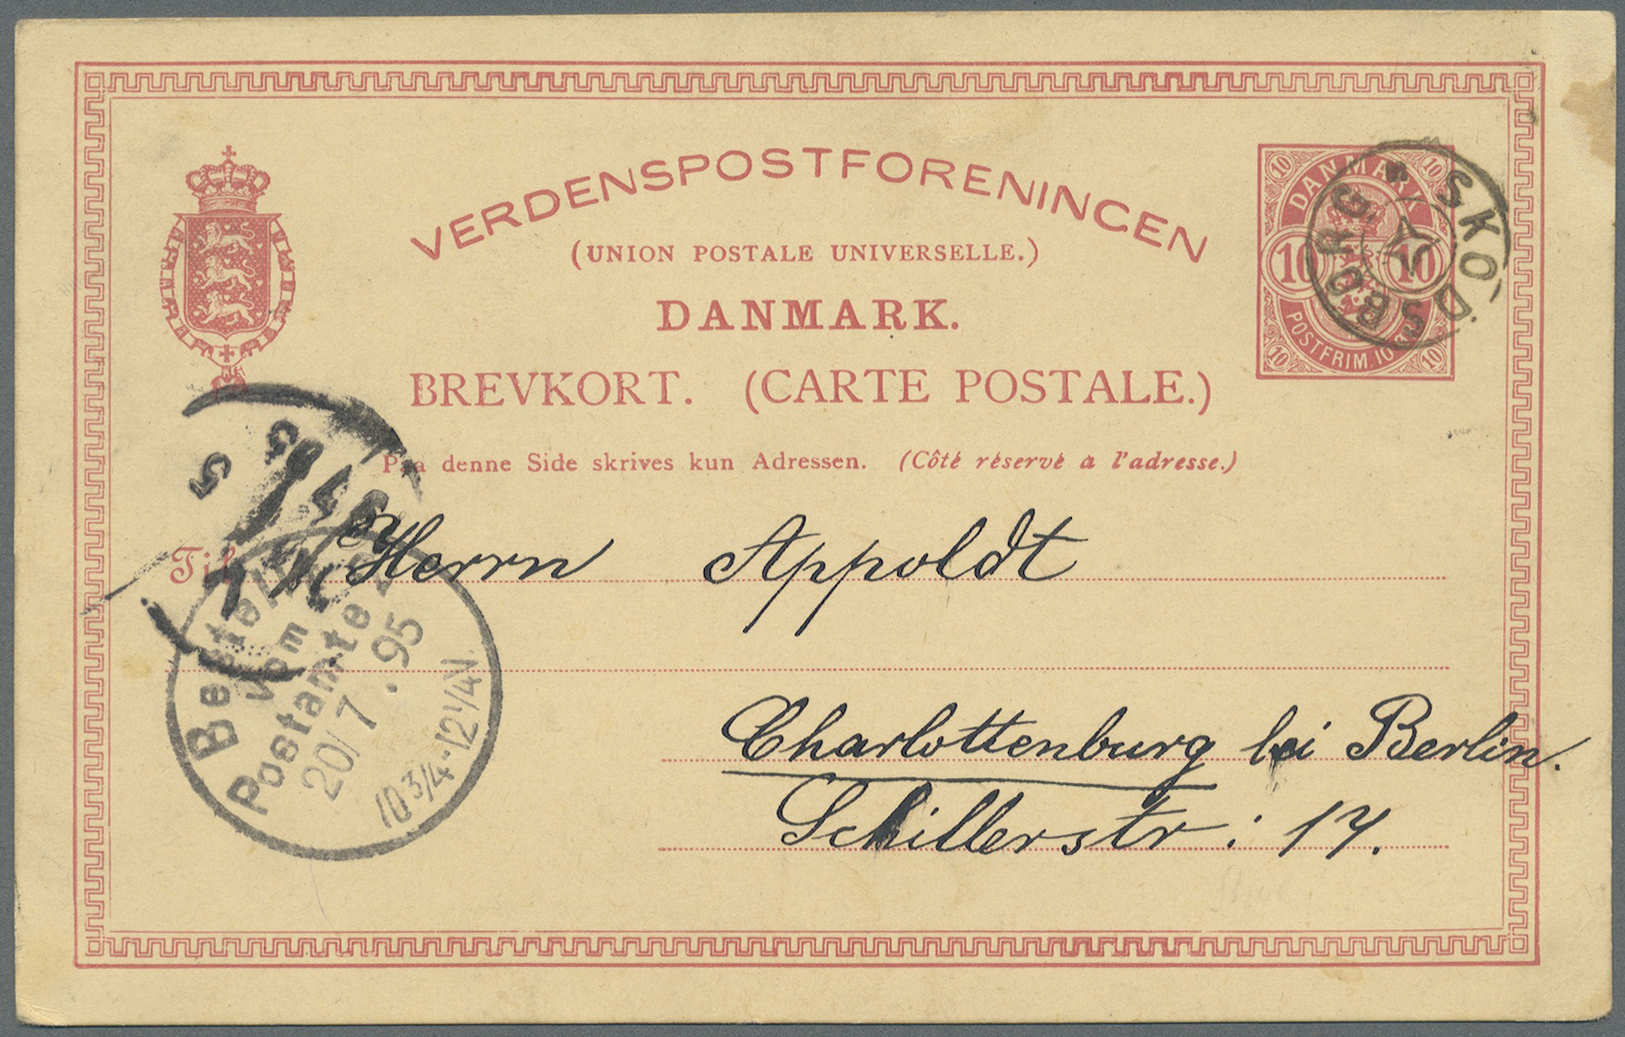 VERDENSPOSTFORENINGEN
(UNION POSTALE UNIVERSELLE.)
DANMARK.
BREVKORT. (CARTE POSTALE.)
Paa denne Side skrives kun Adressen. (Côté réservé a l'adresse.)
10 10
DANMARK
10 10
POSTFRIM. 10
10 10
SKODSBORG
Til Herrn Appoldt
Charlottenburg bei Berlin.
Schillerstr: 17.
Bestellt
vom
Postamte
20/7.95
10 3/4-12 1/4 N.